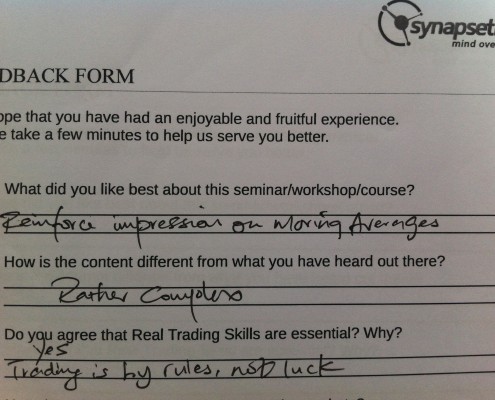 synapset
mind ove
DBACK FORM
ope that you have had an enjoyable and fruitful experience.
e take a few minutes to help us serve you better.
What did you like best about this seminar/workshop/course?
Reinforce impression on Moving Averages
How is the content different from what you have heard out there?
Rather
Do you agree that Real Trading Skills are essential? Why?
Yes
Trading is by rules, not luck